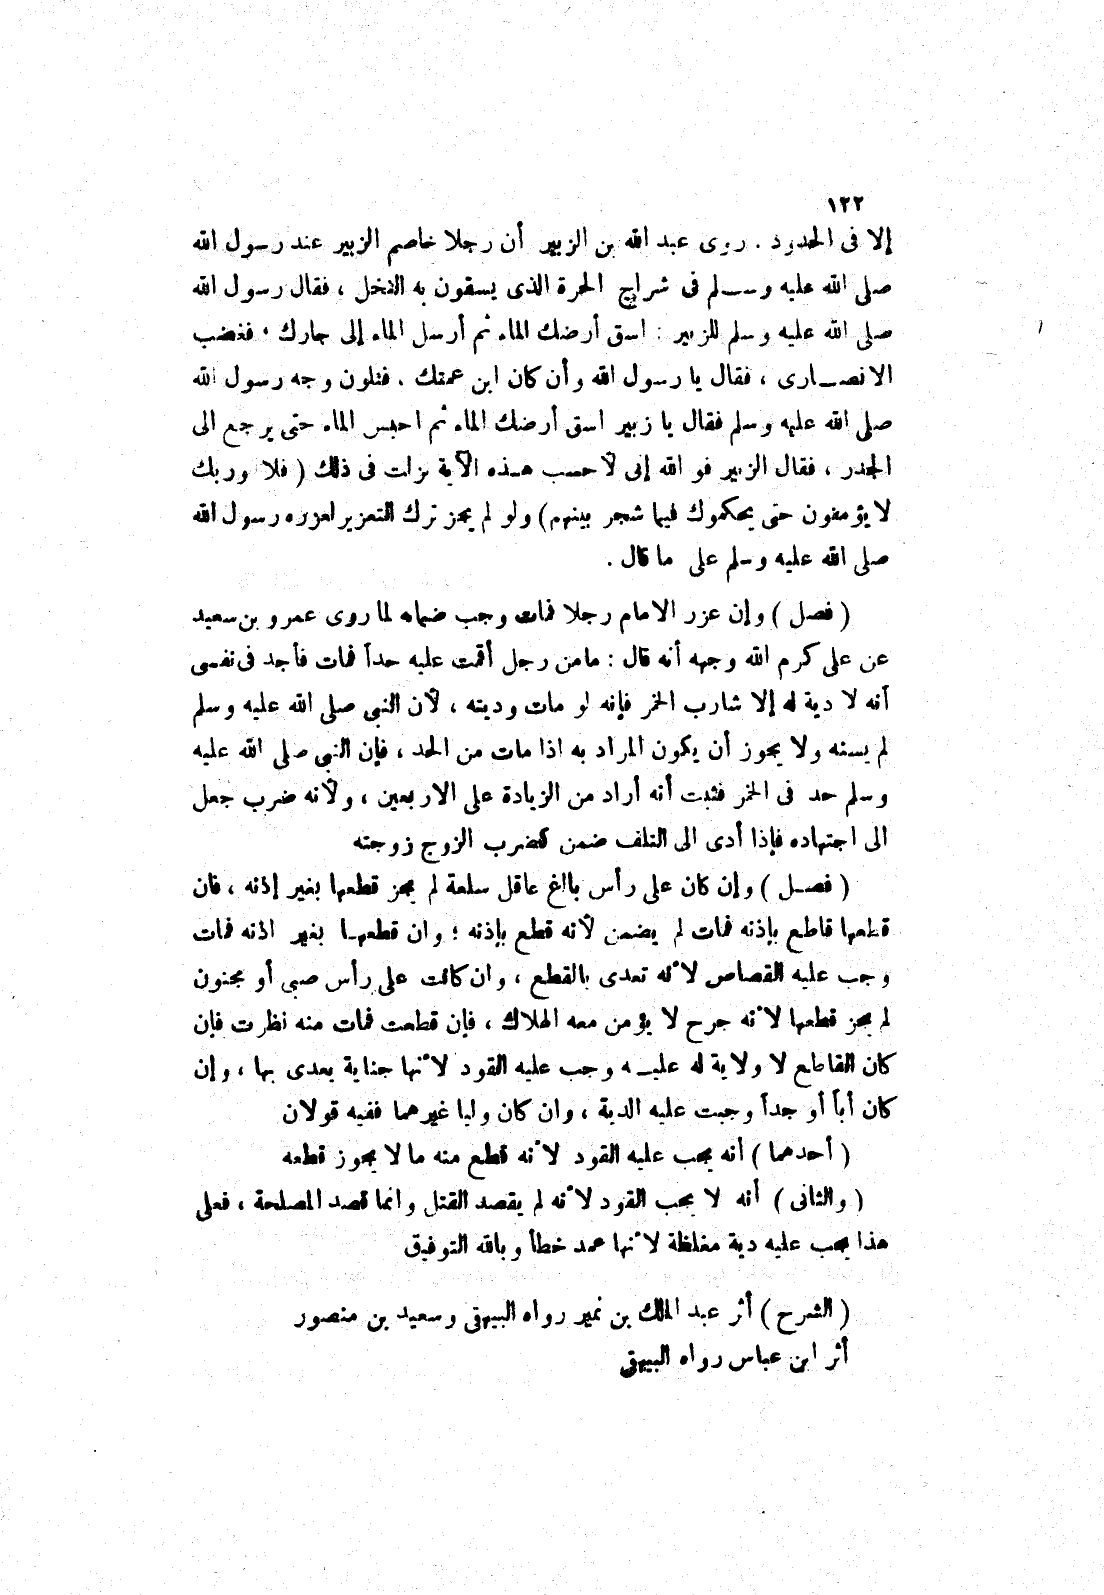 ١٢٢
إلا فى الحدود . روى عبد الله بن الزبير أن رجلا خاصم الزبير عند رسول الله
صلى الله عليه وسلم فى شراج الحرة الذى يسقون به النخل ، فقال رسول الله
صلى الله عليه وسلم للزبير : اسق أرضك الماء ثم أرسل الماء إلى جارك ، فغضب
الانصارى ، فقال يا رسول الله وأن كان ابن عمتك . فتلون وجه رسول الله
صلى الله عليه وسلم فقال يا زبير اسق أرضك الماء ثم احبس الماء حتى يرجع الى
الجدر ، فقال الزبير فو الله إنى لأحسب هذه الآية نزلت فى ذلك ( فلا وربك
لا يؤمنون حتى يحكموك فيما شجر بينهم ) ولو لم يجز ترك التعزير لعزره رسول الله
صلى الله عليه وسلم على ما قال .
( فصل ) وإن عزر الامام رجلا فمات وجب ضمانه لما روى عمرو بن سعيد
عن على كرم الله وجهه أنه قال : مامن رجل أقمت عليه حداً فمات فأجد فى نفسى
أنه لا دية له إلا شارب الخمر فإنه لو مات وديته ، لأن النبى صلى الله عليه وسلم
لم يسنه ولا يجوز أن يكون المراد به اذا مات من الحد ، فإن النبى صلى الله عليه
وسلم حد فى الخمر فثبت أنه أراد من الزيادة على الاربعين ، ولأنه ضرب جعل
الى اجتهاده فإذا أدى الى التلف ضمن كضرب الزوج زوجته
( فصل ) وإن كان على رأس بالغ عاقل سلعة لم يجز قطعها بغير إذنه ، فان
قطعها قاطع بإذنه فمات لم يضمن لأنه قطع بإذنه ؛ وان قطعها بغير اذنه فمات
وجب عليه القصاص لأنه تعدى بالقطع ، وان كانت على رأس صبى أو مجنون
لم يجز قطعها لأنه جرح لا يؤمن معه الهلاك ، فإن قطعت فمات منه نظرت فإن
كان القاطع لا ولاية له عليه وجب عليه القود لأنها جناية يعدى بها ، وإن
كان أباً أو جداً وجبت عليه الدية ، وان كان وليا غيرهما ففيه قولان
( أحدهما ) أنه يجب عليه القود لأنه قطع منه ما لا يجوز قطعه
( والثانى ) أنه لا يجب القود لأنه لم يقصد القتل وانما قصد المصلحة ، فعلى
هذا يجب عليه دية مغلظة لأنها عمد خطأ وبالله التوفيق
( الشرح ) أثر عبد الملك بن نمير رواه البيهقى وسعيد بن منصور
أثر ابن عباس رواه البيهقى